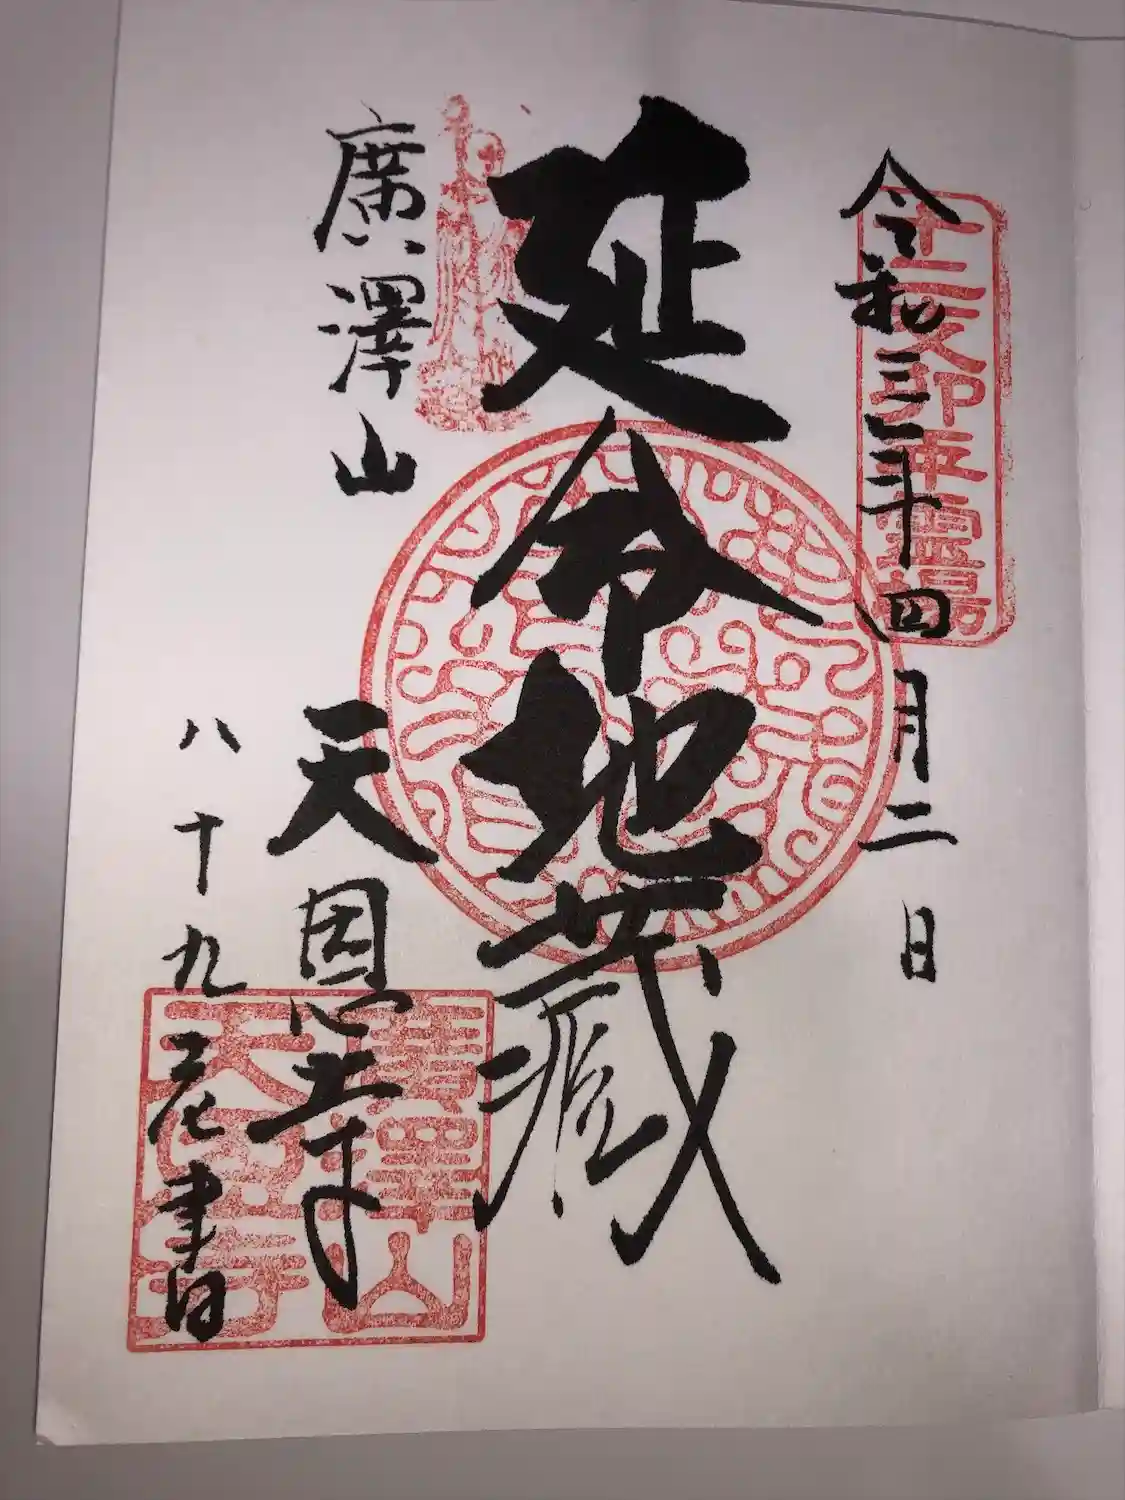 令和三年四月二日
十二支卯年霊場
延命地蔵
廣澤山
天恩寺
八十九老書
廣澤山
天恩寺